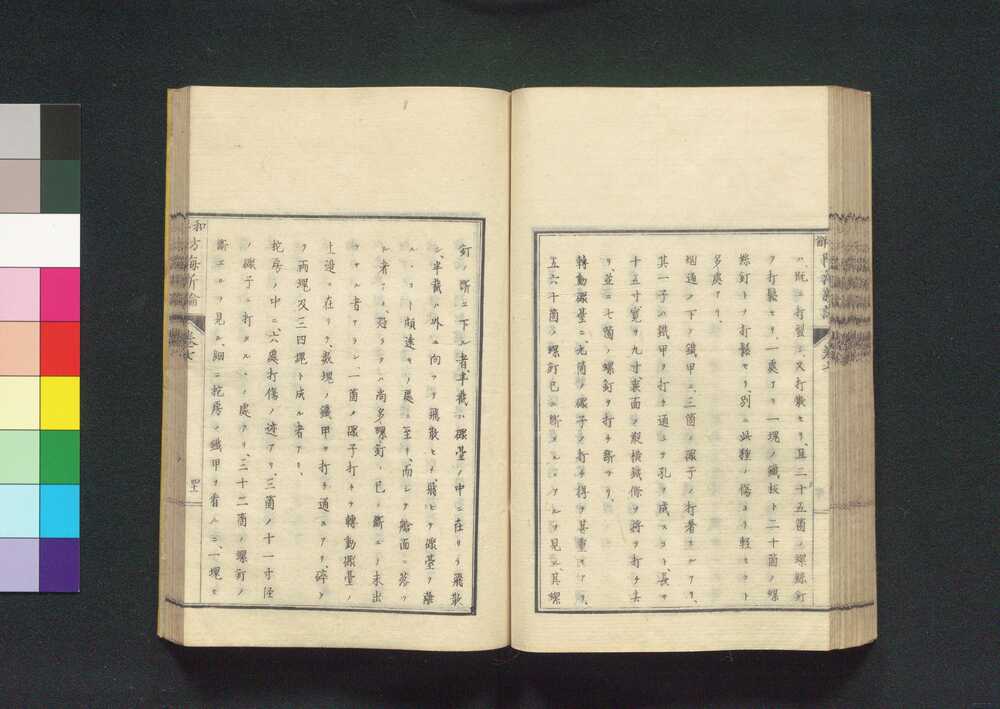 ハ、既ニ打裂シ、又打散セリ、且三十五箇ノ螺鏍釘
ヲ打鬆セリ、一處アリ一塊ノ鐵板ト二十箇ノ螺
鏍釘トヲ打鬆セリ、別ニ此種ノ傷ヨリ輕キコト
多處アリ、
烟通ノ下ノ鐵甲ニ、三箇ノ礮子ノ打著セルアリ、
其一子ハ鐵甲ヲ打チ通シテ孔ヲ成スコト、長サ
十五寸、寛サ九寸、裏面ノ縦横鐵條ヲ將テ打チ去
リ、並ニ七箇ノ螺釘ヲ打チ斷ツ、
轉動礮臺ニ、九箇ノ礮子ノ打チ得テ甚重キアリ、
五六十箇ノ螺釘已ニ斷エシアルヲ見ル、其螺
釘ノ斷エ下ル者、半截ハ礮臺ノ中ニ在リテ飛散
シ、半截ハ外ニ向テ飛散セリ、飛ビテ礮臺ヲ離
ル、コト頗遠キノ處ニ至リ、而シテ艙面ニ落ツ
ル者アリ、恐ラクハ尚多螺釘ノ已ニ斷エテ未出
テサル者アラン、一箇ノ礮子打チテ轉動礮臺ノ
上邊ニ在リテ、數塊ノ鐵甲ヲ打チ通スアリ、碎テ
両塊及三四塊ト成ル者アリ、
舵房ノ中ニ、六處打傷ノ迹アリ、三箇ノ十一寸徑
ノ礮子ニ打タル、ノ處アリ、三十二箇ノ螺釘ノ
斷エタルヲ見ル、細ニ舵房ノ鐵甲ヲ看ルニ、一塊モ
防海新論
巻七